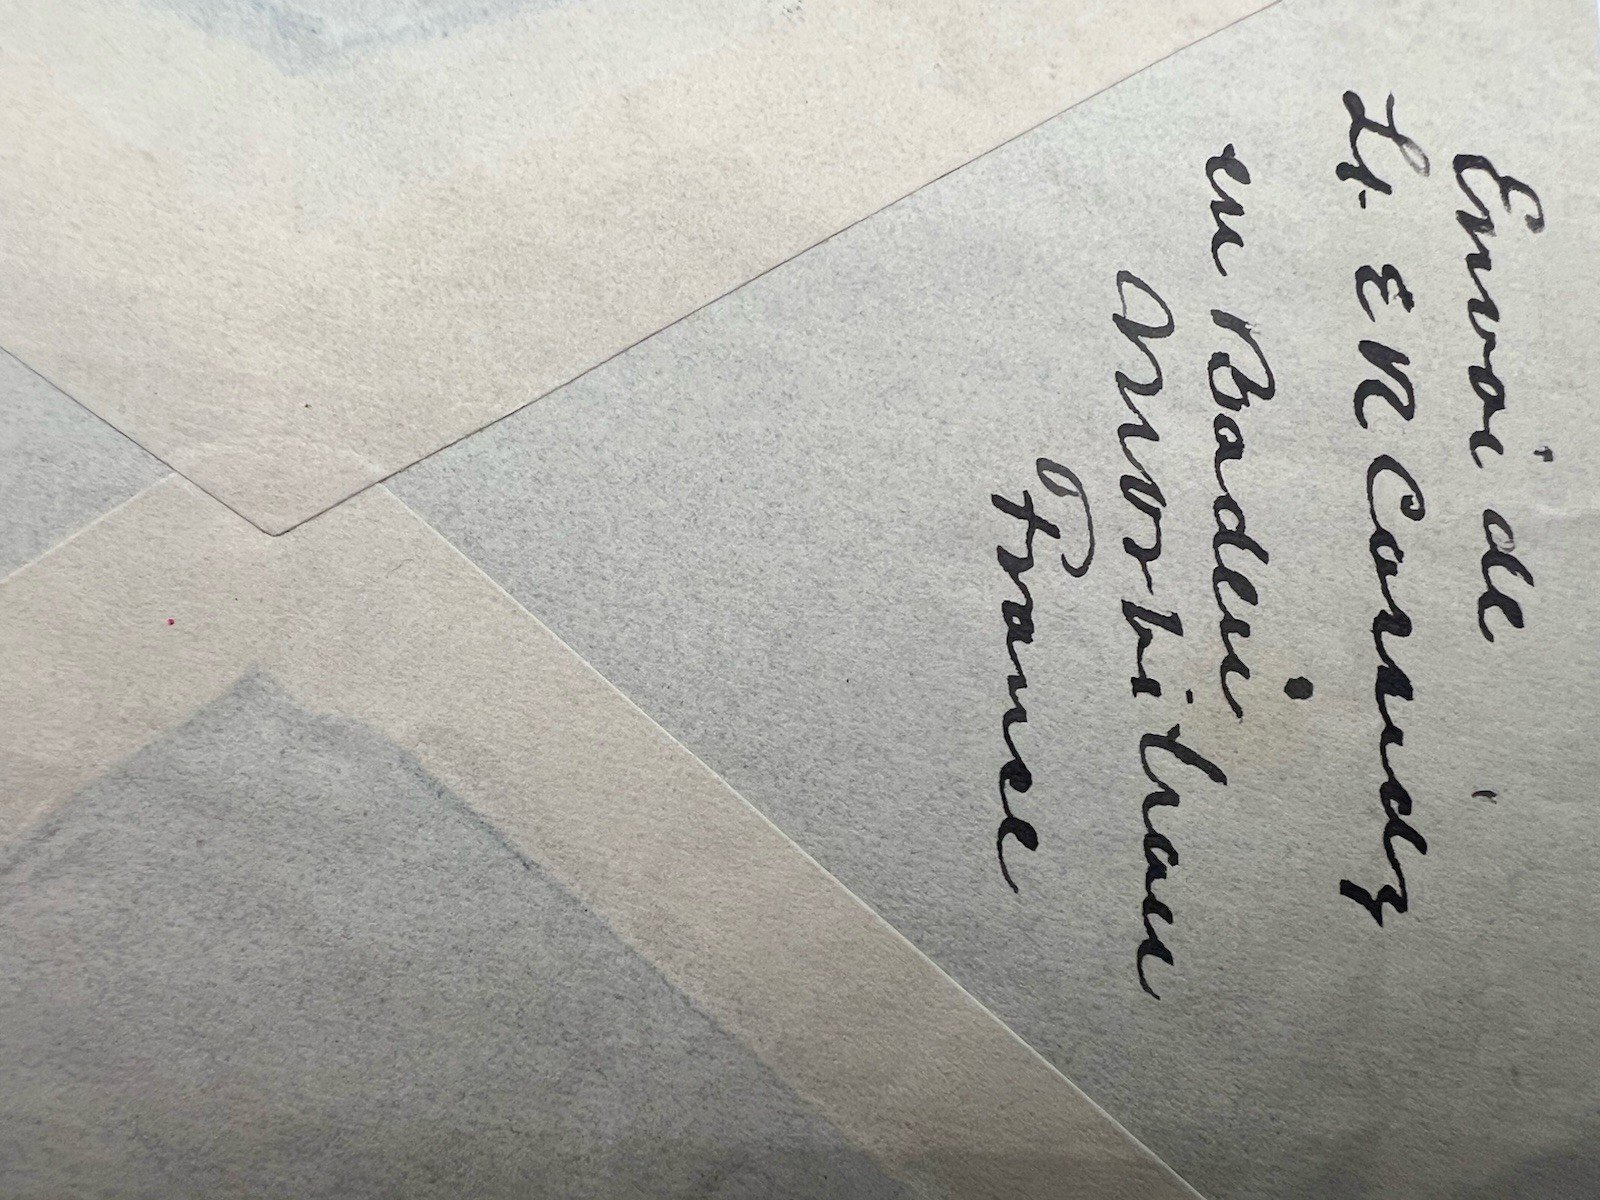 Envoi de
Lt. E
en Baden
Morbihan
France